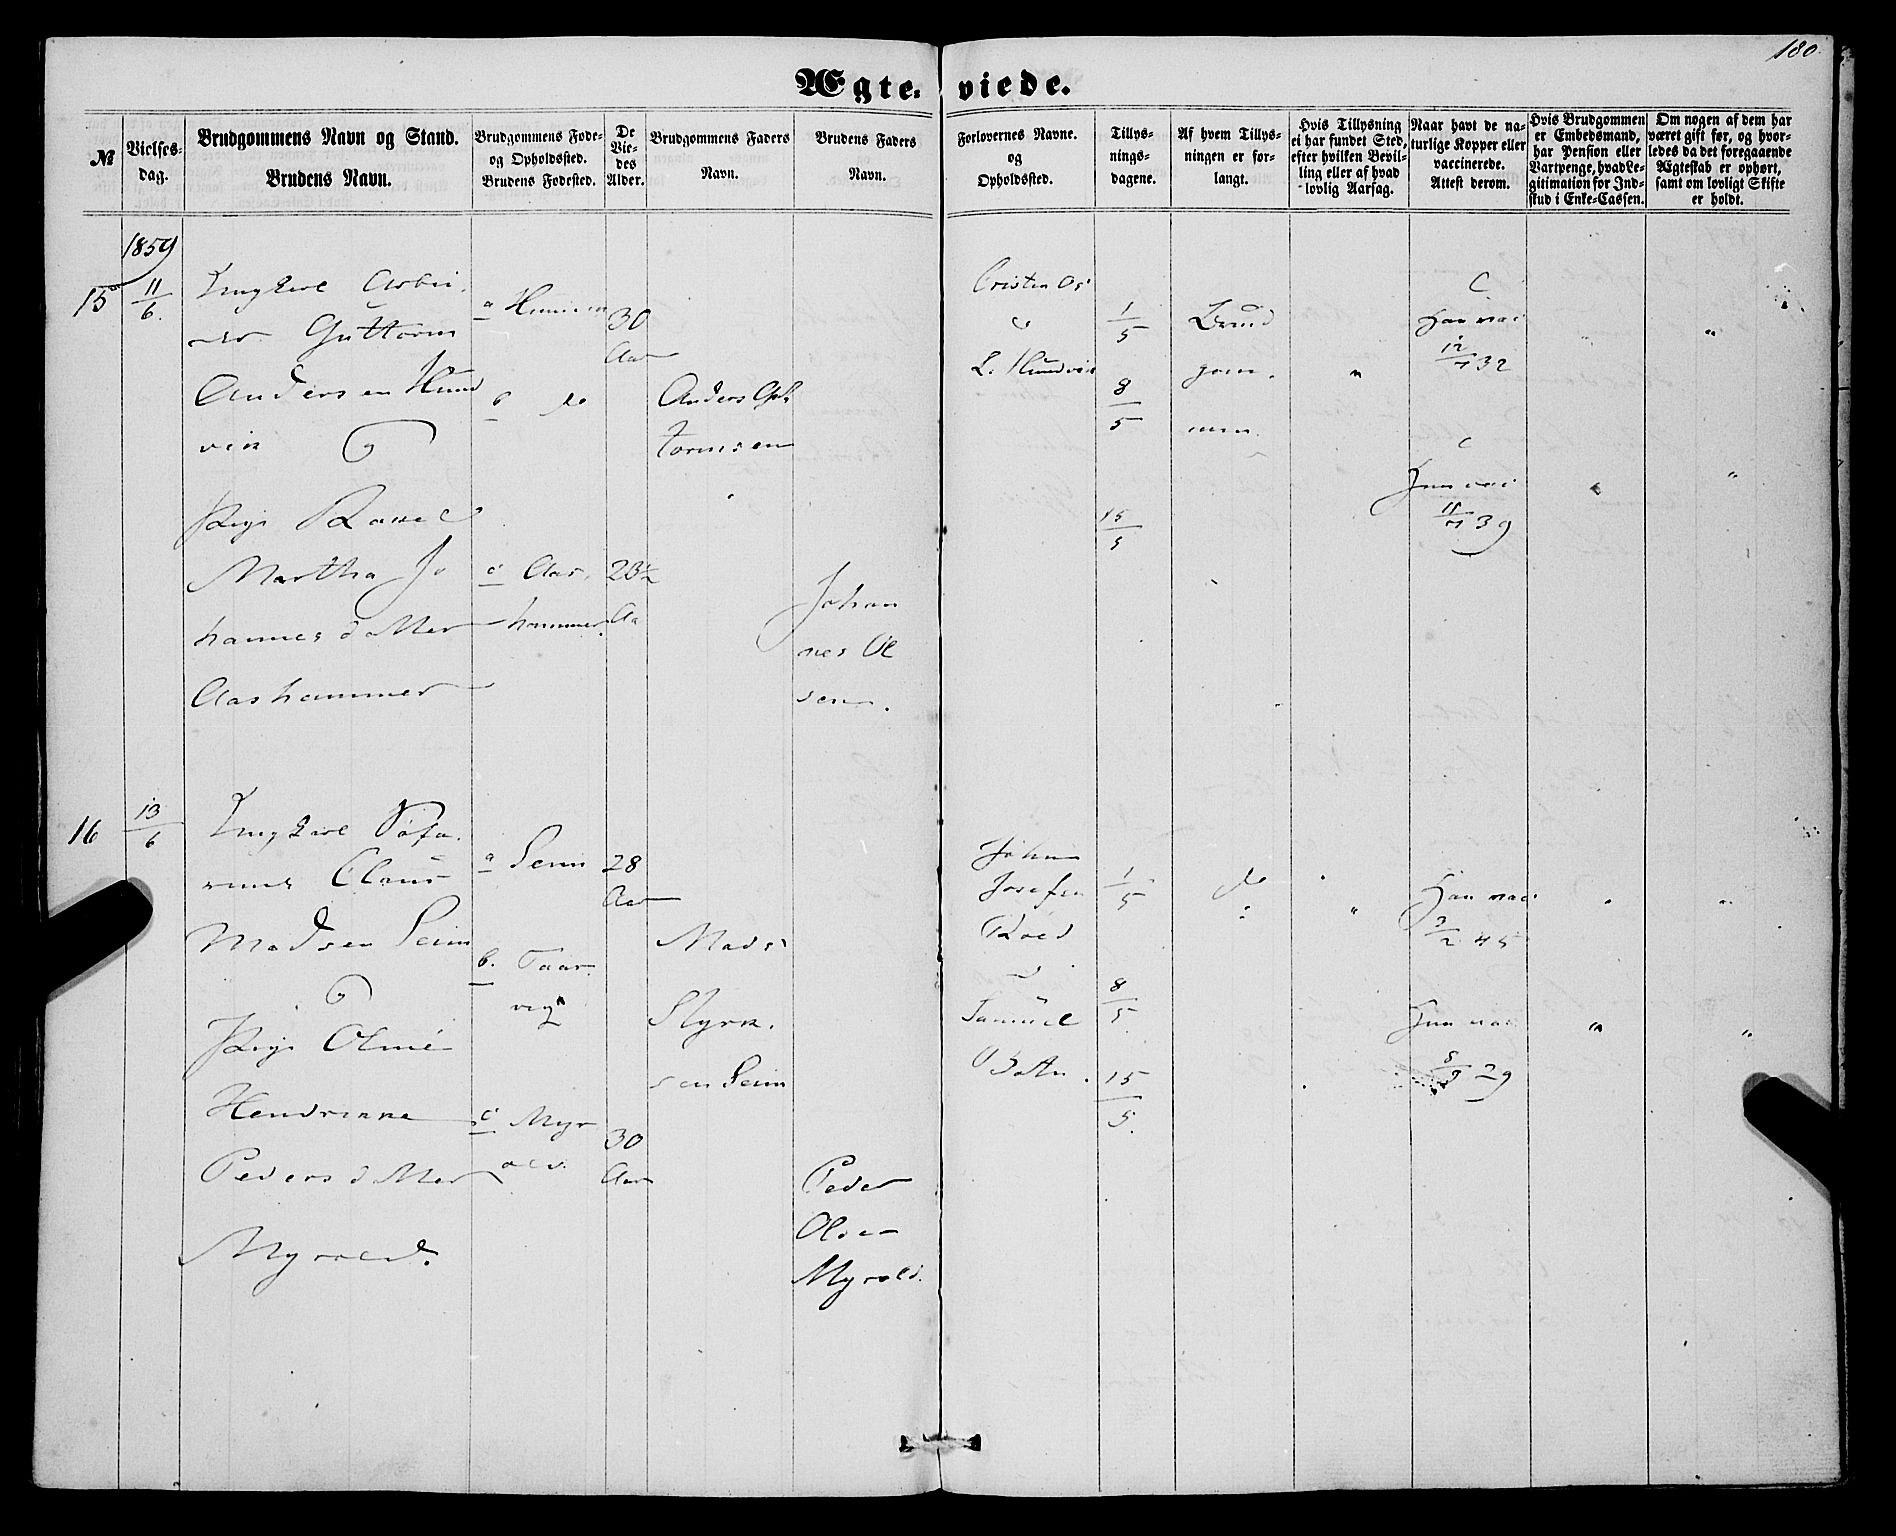 180.
Ægte- viede.
№
Vielses-
dag.
Brudgommens Navn og Stand.
Brudens Navn.
Brudgommens Føde-
og Opholdssted.
Brudens Fødested.
De
Vie-
des
Alder.
Brudgommens Faders
Navn.
Brudens Faders
Navn.
Forlovernes Navne.
og
Opholdssted.
Tillys-
nings-
dagene.
Af hvem Tillys-
ningen er for-
langt.
Hvis Tillysning
ei har fundet Sted,
efter hvilken Bevil-
ling eller af hvad
lovlig Aarsag.
Naar havt de na-
turlige Kopper eller
vaccinerede.
Attest derom.
Hvis Brudgommen
er Embedsmand,
har Pension eller
Vartpenge, hvad Le-
gitimation for Ind-
skud i Enke-Cassen.
Om nogen af dem har
været gift før, og hvor-
ledes da det foregaaende
Ægteskab er ophørt,
samt om lovligt Skifte
er holdt.
1859
15
11/6.
Ungkarl Arbei-
der Guttorm
Andersen Hund
vin
Pige
Martha Jo
hannesdatter
Aashammer
a
b do
c Aas-
hammer.
30
Aar
23½
Aa
Anders Gut
tormsen
Johan
nes Ol
sen.
L. Hundvin
1/5
8/5
15/5
Brud
gom.
men.
Han vac
12/7 32
Hun vac
11/7 39
16
13/6
Ungkarl
Claus
Madsen Seim
Pige Oline
Hendrikke
Pedersdatter
Myrold.
a Seim
b. Taar-
vig
c Myr
old.
28
Aar
30
Aar
Mads
Styrk-
sen Seim
Peder
Olsen
Myrold.
Johan
Josefsen
Samuel
Botn.
1/5
8/5
15/5.
do
Han vac
3/2 45
Hun vac
8/9 29